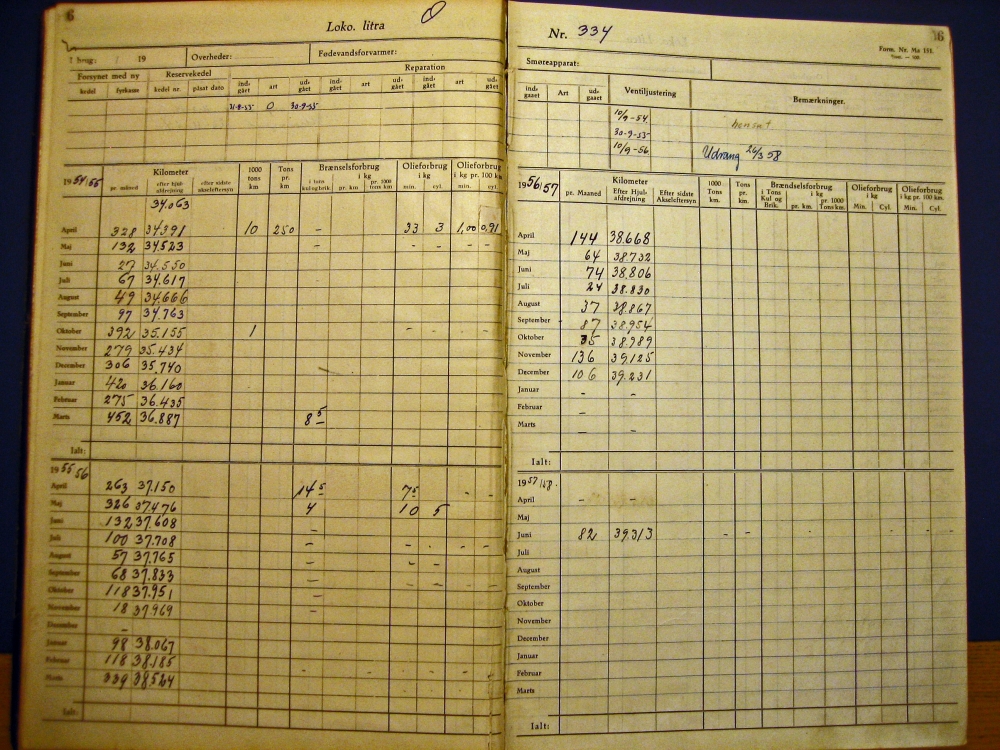 6
Loko. litra O
I brug: / 19
Overheder:
Fødevandsforvarmer:
Forsynet med ny
Reservekedel
Reparation
kedel
fyrkasse
kedel nr.
påsat dato
ind-gået
art
ud-gået
ind-gået
art
ud-gået
ind-gået
art
ud-gået
31-8-55 O 30-9-55
1954/55
pr. måned
Kilometer
efter hjul-afdrejning
efter sidste akseleftersyn
1000 tons km
Tons pr. km
Brænselsforbrug
i tons kul og brik
i kg
pr. km
pr. 1000 tons km
Olieforbrug i kg
min.
cyl.
Olieforbrug i kg pr. 100 km
min.
cyl.
34.063
April 328 34391 10 250 - 33 3 1,00 0,91
Maj 132 34.523 - - - - -
Juni 27 34.550
Juli 67 34.617
August 49 34.666
September 97 34.763
Oktober 392 35.155 1 - - - -
November 279 35.434
December 306 35.740
Januar 420 36.160
Februar 275 36.435
Marts 452 36.887 8 5
Ialt:
1955/56
April 263 37.150 14 5 75 - -
Maj 326 37476 4 10 5
Juni 132 37.608 -
Juli 100 37.708 - - - - -
August 57 37.765 - - -
September 68 37.833 - - - - -
Oktober 118 37.951 -
November 18 37969 -
December -
Januar 98 38.067
Februar 118 38.185 - - - - -
Marts 339 38524
Ialt:
16
Nr. 334
Form. Nr. Ma 151.
Smøreapparat:
ind-gaaet
Art
ud-gaaet
Ventiljustering
Bemærkninger.
10/9-54
30-9-55
10/9-56
hensat
Udrang. 26/3 58
1956/57
pr. Maaned
Kilometer
Efter Hjul-afdrejning
Efter sidste Akseleftersyn
1000 Tons km.
Tons pr. km.
Brændselsforbrug
i Tons Kul og Brik.
i kg
pr. km.
pr. 1000 Tons km.
Olieforbrug i kg
Min.
Cyl.
Olieforbrug i kg pr. 100 km.
Min.
Cyl.
April 144 38.668
Maj 64 38.732
Juni 74 38.806
Juli 24 38.830
August 37 38.867
September 87 38.954
Oktober 35 38.989
November 136 39,125
December 106 39.231
Januar - -
Februar -
Marts - -
Ialt:
1957/58.
April - -
Maj
Juni 82 39.313 - - - - - -
Juli
August
September
Oktober
November
December
Januar
Februar
Marts
Ialt: